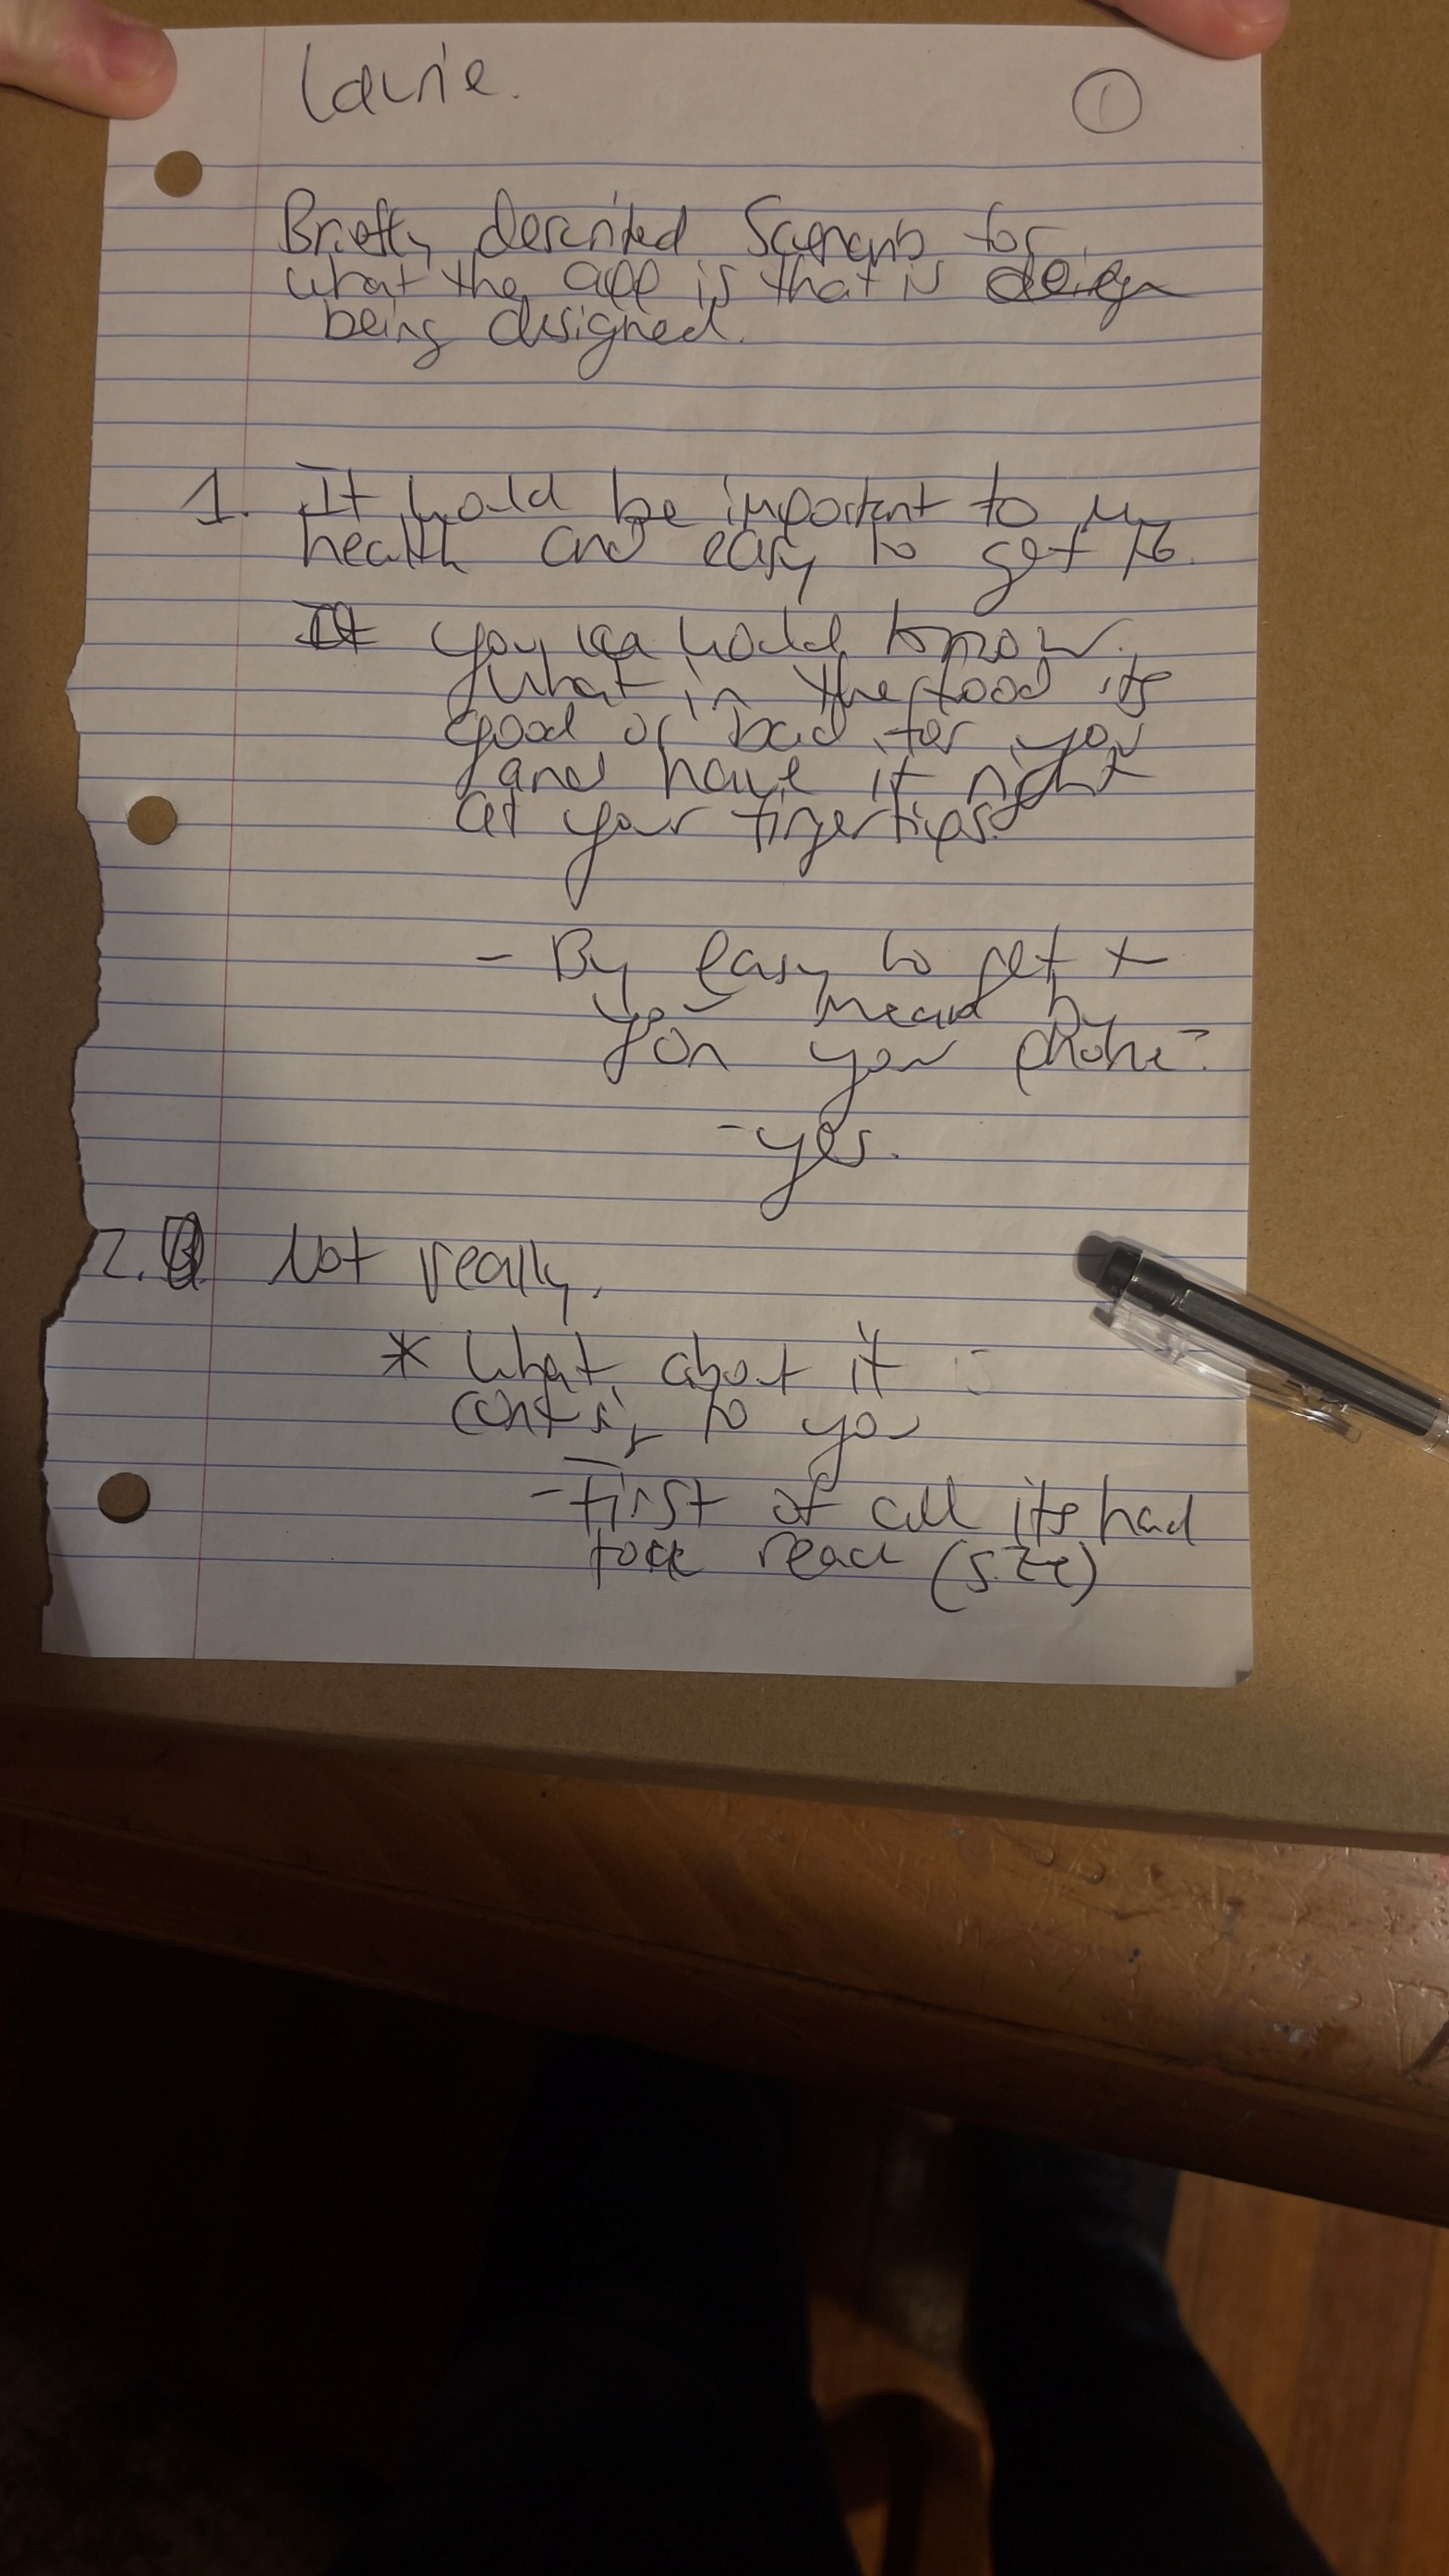 Laurie.
1
Briefly described Scenario for
what the app is that is design
being designed.
1. It would be important to my
health and easy to get to.
It you would know
what in the food its
good or bad for you
and have it right
at your fingertips.
- By easy to get to
you mean by
on your phone?
- yes.
2. Not really.
* What about it is
to you
- First of all its hard
to read (size)